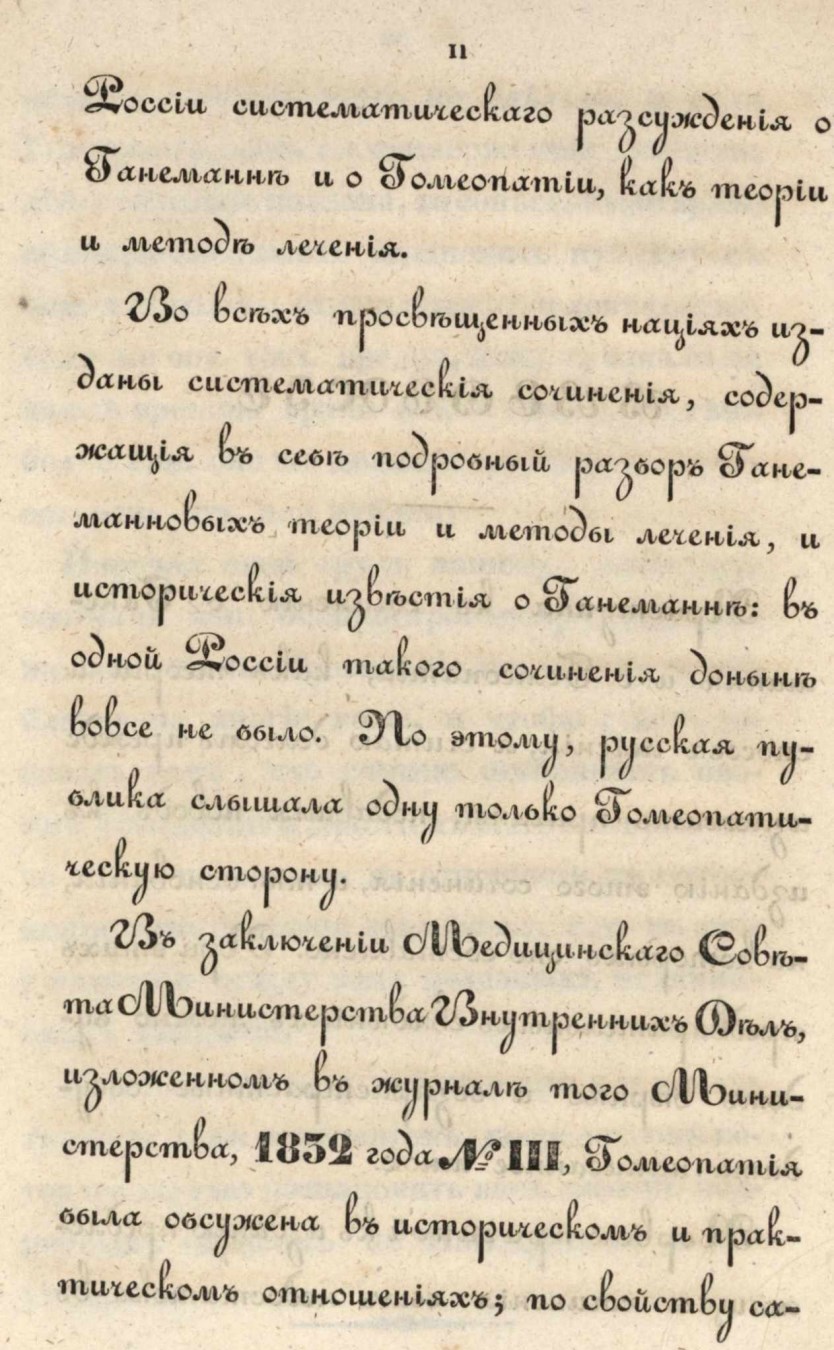 II
Россіи систематическаго разсужденія о
Ганеманнѣ и о Гомеопатіи, какъ теоріи
и методѣ леченія.
Во всѣхъ просвѣщенныхъ націяхъ из-
даны систематическія сочиненія, содер-
жащія въ себѣ подробный разборъ Гане-
манновыхъ теоріи и методы леченія, и
историческія извѣстія о Ганеманнѣ: въ
одной Россіи такого сочиненія донынѣ
вовсе не было. По этому, русская пу-
блика слышала одну только Гомеопати-
ческую сторону.
Въ заключеніи Медицинскаго Совѣ-
та Министерства Внутреннихъ Дѣлъ,
изложенномъ въ журналѣ того Мини-
стерства, 1832 года № III, Гомеопатія
была обсужена въ историческомъ и прак-
тическомъ отношеніяхъ; по свойству са-